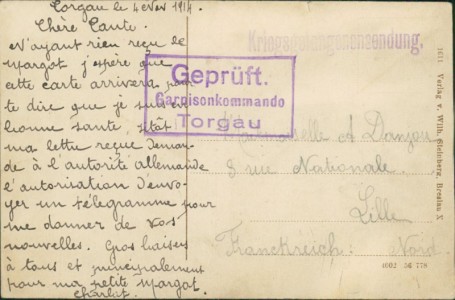 Torgau le 4 Nov 1914.
Chère Tante.
N'ayant rien reçu de
Margot j'espère que
cette carte arrivera pour
te dire que je suis en
bonne santé, sitôt
ma lettre reçue deman-
de à l'autorité allemande
l'autorisation d'envo-
yer un télégramme pour
me donner de vos
nouvelles. Gros baisers
à tous et principalement
pour ma petite Margot.
Charlot.
Kriegsgefangenensendung.
Geprüft.
Garnisonkommando
Torgau
Mademoiselle A Danjou
8 rue Nationale.
Lille
Franckreich: Nord.
1611 Verlag v. Wilh. Steinberg, Breslau X